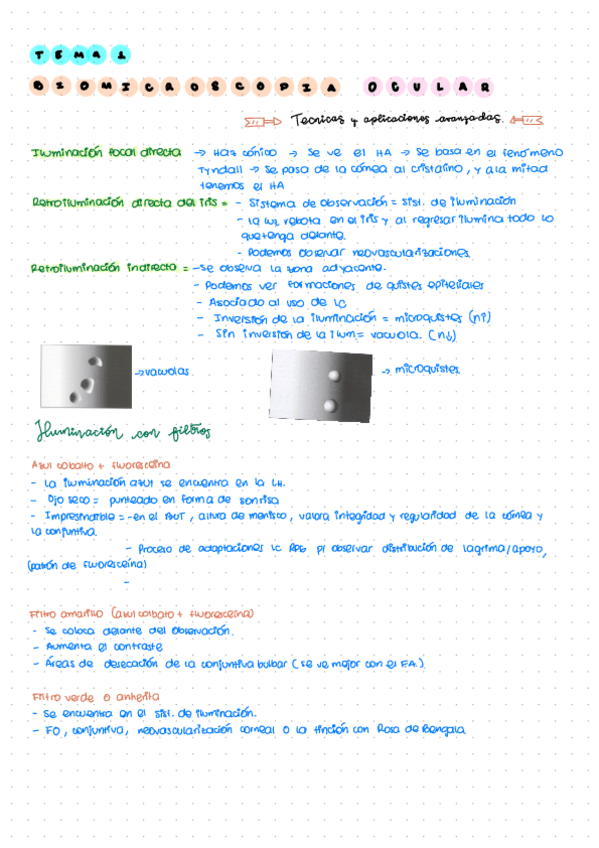 TEMA 1
BIOMICROSCOPIA OCULAR
Tecnicas y aplicaciones avanzadas.
Iluminación focal directa → Haz cónico → Se ve el HA → Se basa en el fenómeno
Tyndall → Se pasa de la córnea al cristalino, y a la mitad
tenemos el HA
Retroiluminación directa del iris = - Sistema de observación = sist. de iluminación
- La luz rebota en el iris y al regresar ilumina todo lo
que tenga delante.
- Podemos observar neovascularizaciones
Retroiluminación indirecta = - Se observa la zona adyacente.
- Podemos ver formaciones de quistes epiteliales
- Asociado al uso de LC
- Inversión de la iluminación = microquistes (n↑)
- Sin inversión de la ilum = vacuola. (n↓)
→ vacuolas
→ microquistes
Iluminación con filtros
Azul cobalto + fluoresceína
- La iluminación azul se encuentra en la LH.
- Ojo seco = punteado en forma de sonrisa
- Imprescindible = - en el BUT, altura de menisco, valora integridad y regularidad de la córnea y
la conjuntiva.
- Proceso de adaptaciones LC RPG p/ observar distribución de lagrima/apoyo,
(patrón de fluoresceína)
-
Filtro amarillo (azul cobalto + fluoresceína)
- Se coloca delante del observación.
- Aumenta el contraste
- Áreas de desecación de la conjuntiva bulbar (se ve mejor con el FA.)
Filtro verde o anherita
- Se encuentra en el sist. de iluminación.
- FO, conjuntiva, neovascularización corneal o la tinción con Rosa de Bengala